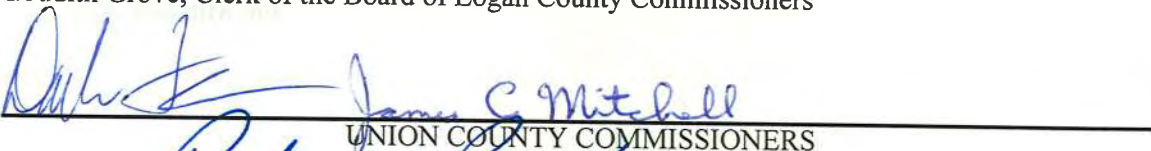 Grove, Clerk of the Board of Logan County Commissioners
James C Mitchell
UNION COUNTY COMMISSIONERS